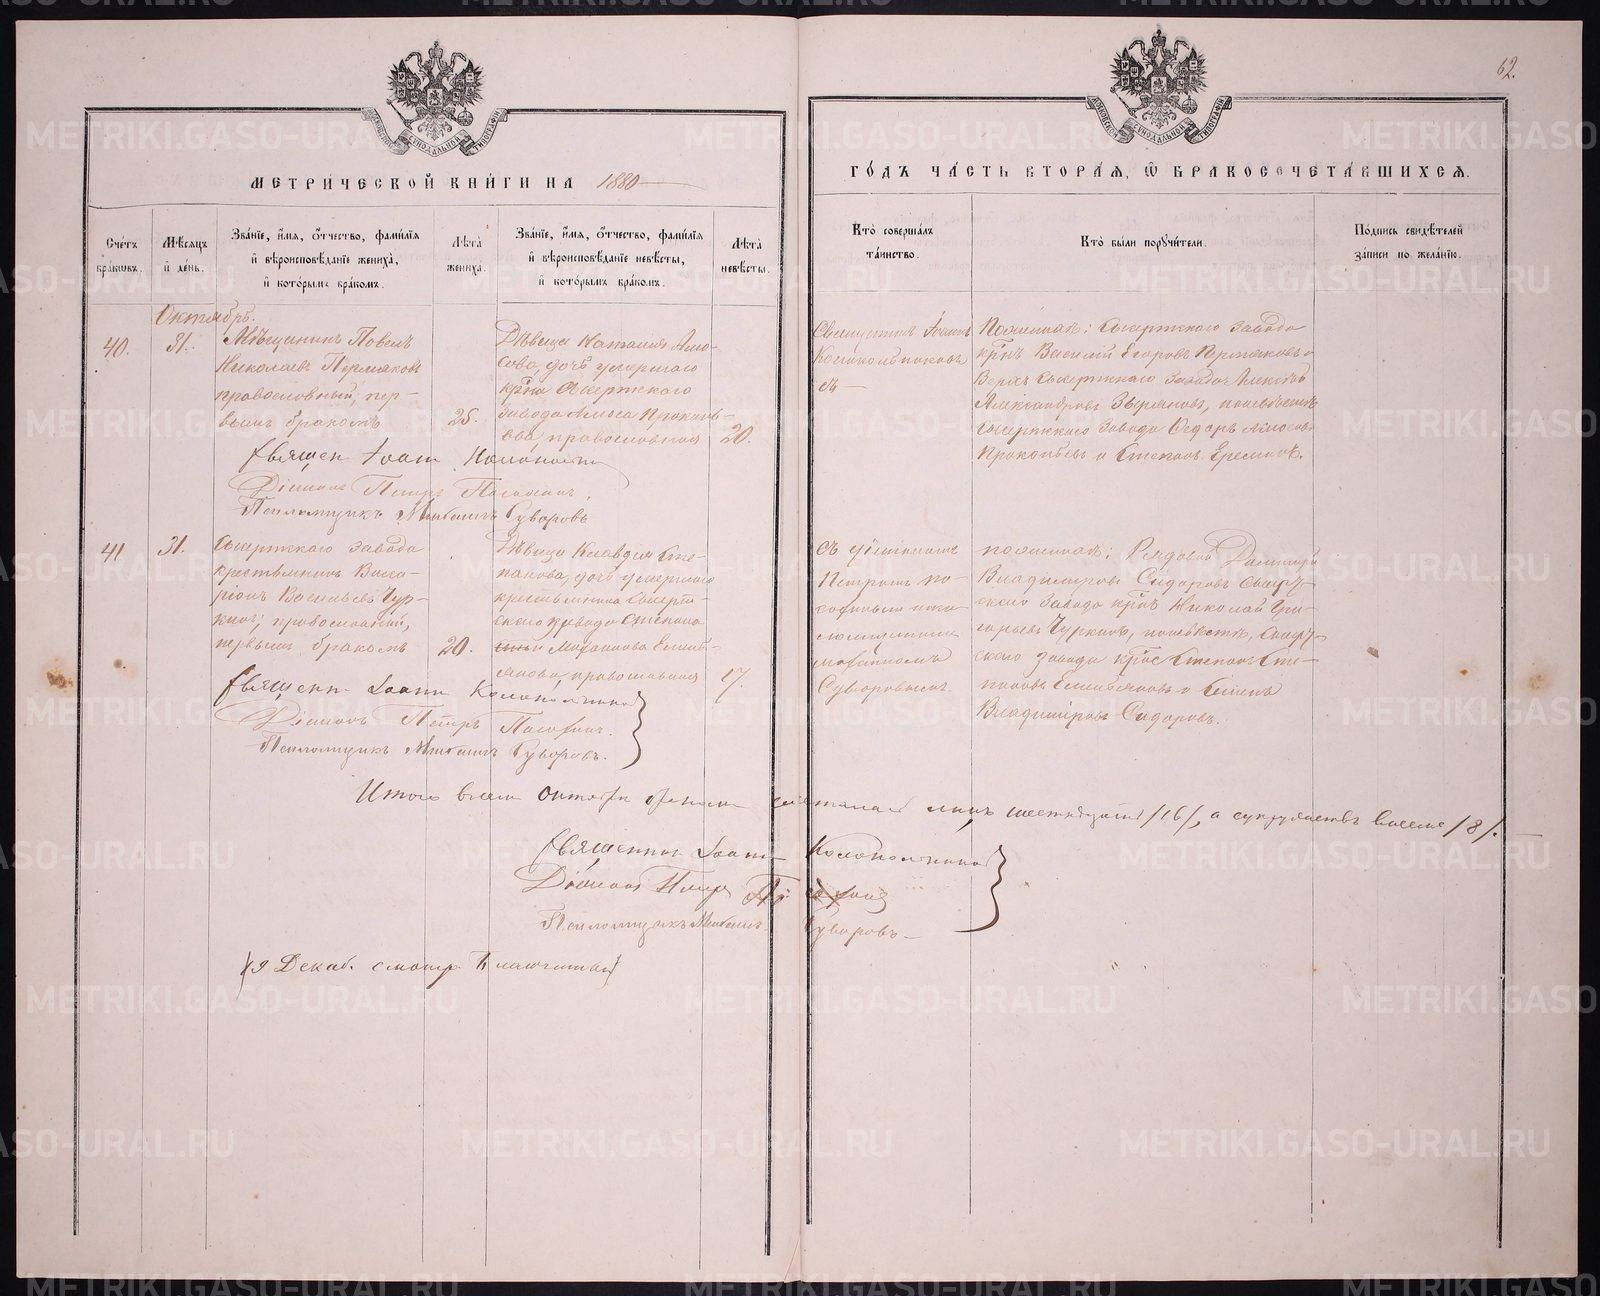 62.
МЕТРИЧЕСКОЙ КНИГИ НА 1880
ГОДЪ ЧАСТЬ ВТОРАЯ, Ѽ БРАКОСОЧЕТАВШИХСЯ.
Счетъ браковъ.
Мѣсяцъ и день.
Званіе, имя, отчество, фамилія
и вѣроисповѣданіе жениха,
и которымъ бракомъ.
Лѣта жениха.
Званіе, имя, отчество, фамилія
и вѣроисповѣданіе невѣсты,
и которымъ бракомъ.
Лѣта невѣсты.
Кто совершалъ
таинство.
Кто были поручители.
Подпись свидѣтелей
записи по желанію.
Октябрь.
40.
31.
Мѣщанинъ Павелъ
Николаевъ Пермяковъ
православный, пер-
вымъ бракомъ
25.
Дѣвица Наталія Амо-
сова, дочь умершаго
кр̃на Сысертскаго
завода Амоса Прокопь-
ева, православная
20.
Священникъ Іоаннъ
Колокольниковъ
съ
По женихѣ: Сысертскаго завода
кр̃нъ Василій Егоровъ Пермяковъ и
Верхъ Сысертскаго завода Алексѣй
Александровъ Звѣряковъ, по невѣстѣ
Сысертскаго завода Ѳедоръ Амосовъ
Прокопьевъ и Степанъ Еремѣевъ.
Священ Іоанн
Діаконъ Петръ
Псаломщикъ Михаилъ Суворовъ
41
31.
Сысертскаго завода
крестьянинъ Илла-
ріонъ Васильевъ Чур-
кинъ, православный,
первымъ бракомъ
20.
Дѣвица Клавдія Сте-
панова, дочь умершаго
крестьянина Сысерт-
скаго завода Степана
Емель-
янова, православная
17.
Съ діакономъ
Петромъ
и пса-
ломщикомъ
Михаиломъ
Суворовымъ.
По женихѣ: Рядовой Димитрій
Владиміровъ Сидоровъ Сысерт-
скаго завода кр̃нъ Николай Гри-
горьевъ Чуркинъ, по невѣстѣ, Сысерт-
скаго завода кр̃не Степанъ Сте-
пановъ Емельяновъ и Семенъ
Владиміровъ Сидоровъ.
Священн Іоанн Колокольников
Діаконъ Петръ
Псаломщикъ Михаилъ Суворовъ.
Итого въ Октябрѣ лицъ шестнадцать /16/, а супружествъ восемь /8/.
Священник Іоанн Колокольников
Діаконъ Петръ
Псаломщикъ Михаилъ Суворовъ
9 Декаб. смотр. Благочинный
METRIKI.GASO-URAL.RU